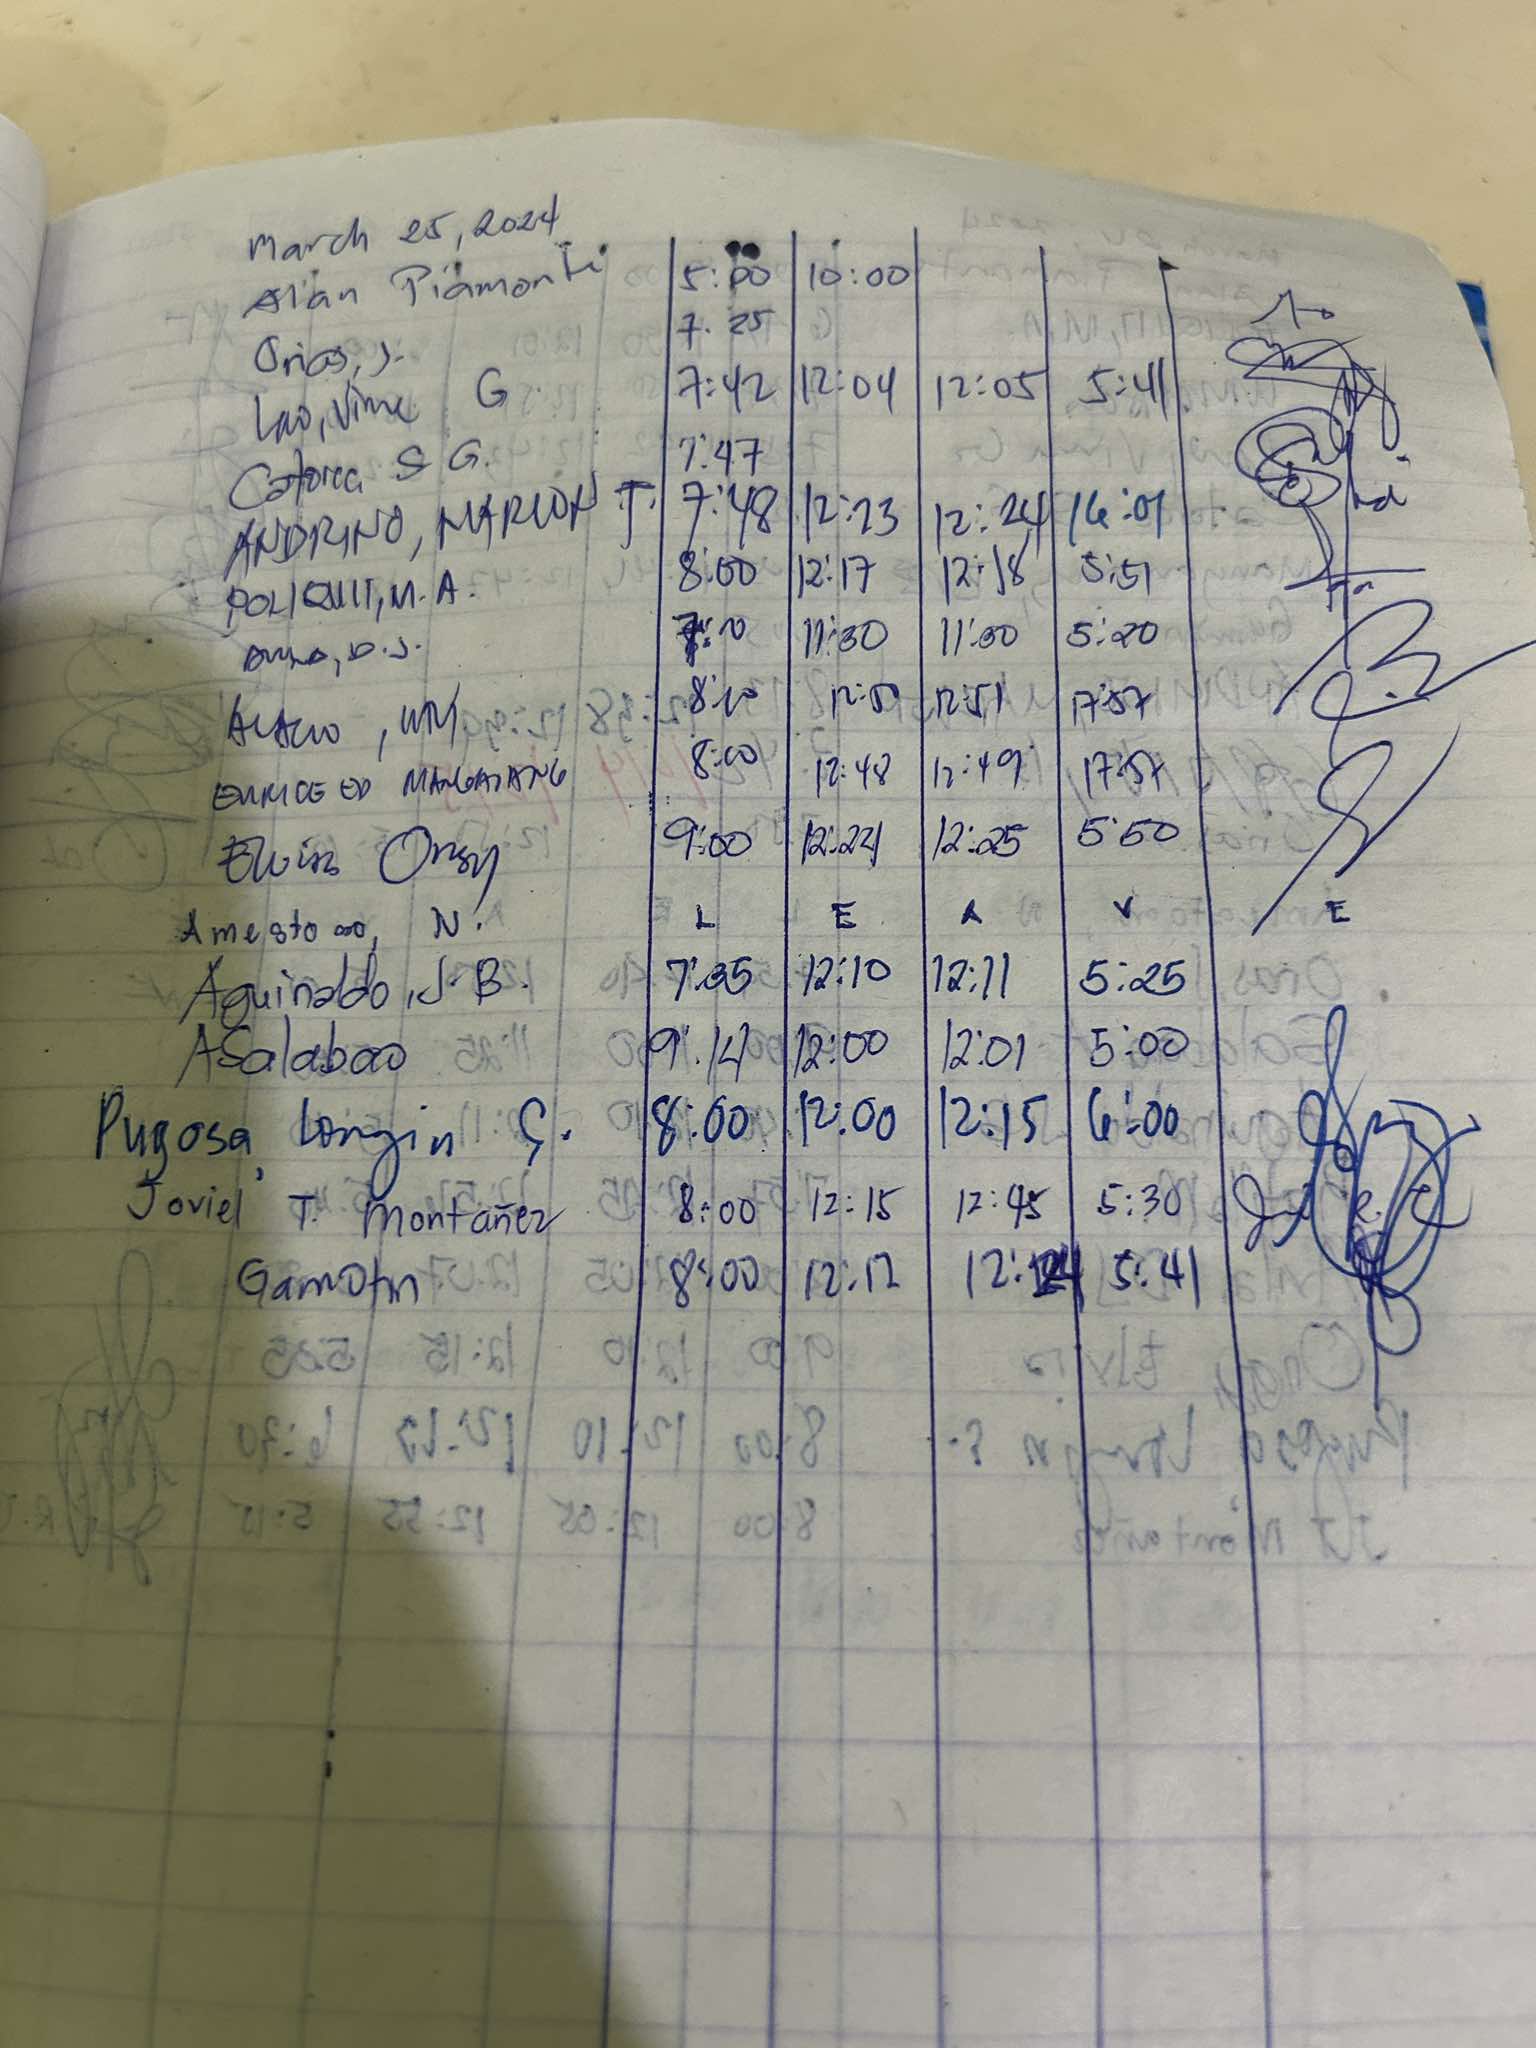 March 25, 2024
Alan Piamonte 5:00 10:00
Orias, J. 7:25
Lao, Vime G 7:42 12:04 12:05 5:41
Catora S G. 7:47
ANDRINO, MARLON T. 7:48 12:23 12:24 16:01
POLIQUIT, M. A. 8:00 12:17 12:18 5:51
D.J. 11:30 11:30 5:20
, WM 8:10 12:50 12:51 17:57
EUNICE ED MANGATANG 8:00 12:48 12:49 17:57
Elvira Ongy 9:00 12:24 12:25 5:50
Amestoso, N. L E A V E
Aguinaldo, J. B. 7:35 12:10 12:11 5:25
ASalabao 9:14 12:00 12:01 5:00
Pugosa, Longin G. 8:00 12:00 12:15 6:00
Joviel T. Montañez 8:00 12:15 12:45 5:30
Gamotin 8:00 12:12 5:41